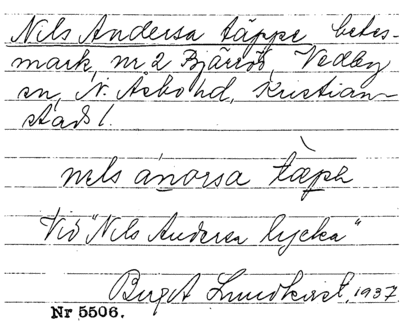 Nils Andersa täppe betes-
mark, nr 2 Bjärröd, Vedby
sn, N. Åsbo hd, Kristian-
stads l.
nels anorsa tæpə
Vid "Nils Andersa lycka"
Birgit Lundkvist, 1937.
Nr 5506.